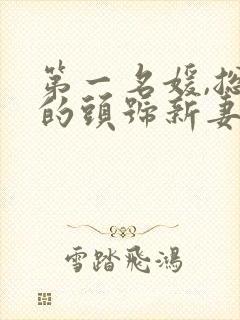 第一名媛,總
的頭號新妻
雪踏飛鴻